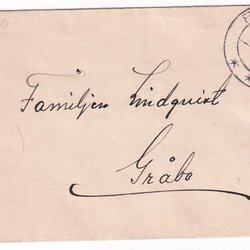 Familjen Lindqvist
Gråbo